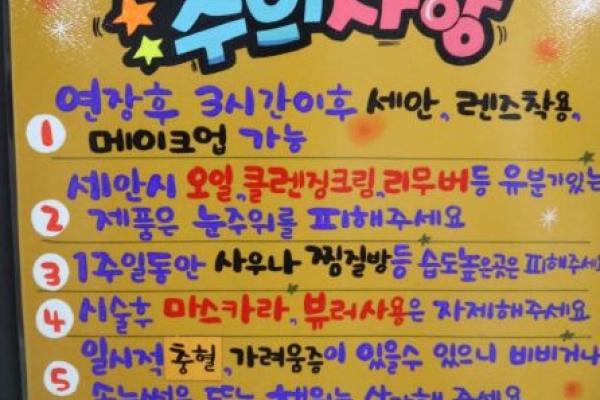 주의사항
1 연장후 3시간이후 세안, 렌즈착용,
메이크업 가능
2 세안시 오일,클렌징크림,리무버등 유분기있는
제품은 눈주위를 피해주세요
3 1주일동안 사우나 찜질방등 습도높은곳은 피해주세요
4 시술후 마스카라, 뷰러사용은 자제해주세요
5 일시적 충혈,가려움증이 있을수 있으니 비비거나